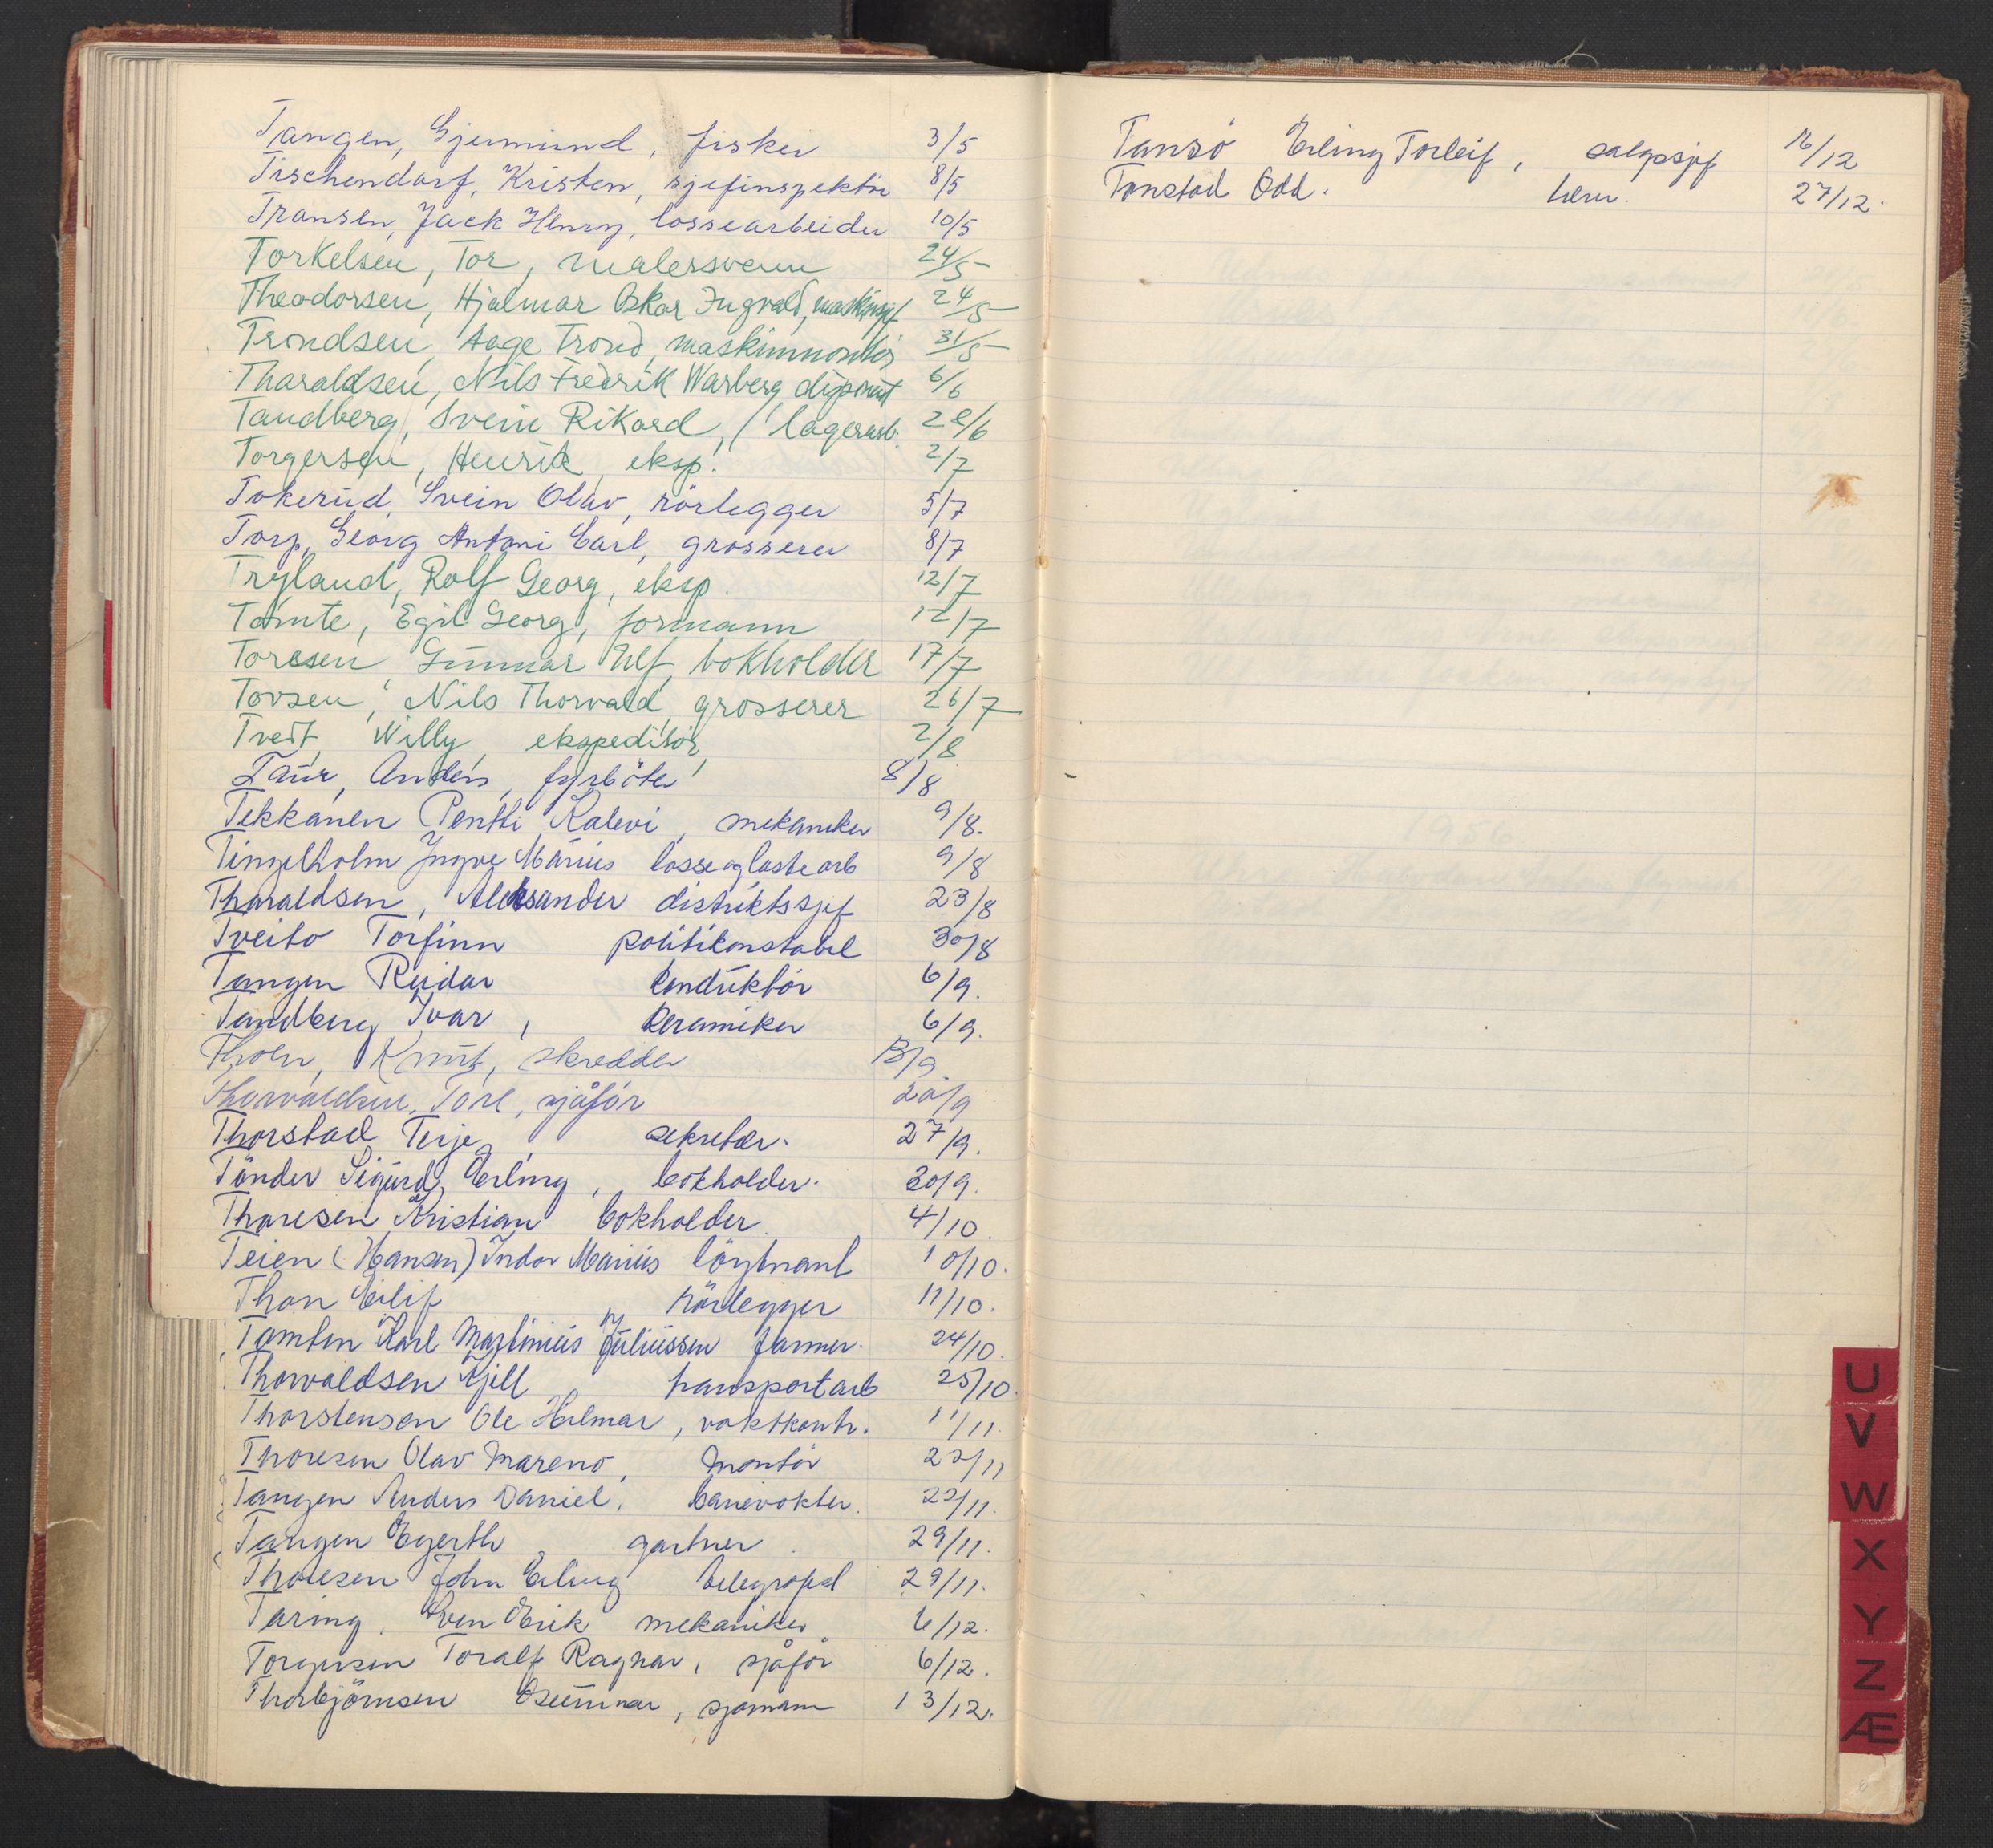 Tangen, Gjermund, fisker 3/5
Tischendorf, Kristen, sjefinspektør 8/5
Transen, Jack Henry, lossearbeider 10/5
Torkelsen, Tor, malersvenn 24/5
Theodorsen, Hjalmar Oskar Ingvald, maskinsjef 24/5
Trondsen, Aage Trond, maskinmontör 31/5
Tharaldsen, Nils Fredrik Warberg, disponent 6/6
Tandberg, Svein Rikard, lagerarb. 28/6
Torgersen, Henrik, eksp. 2/7
Tokerud, Svein Olav, rörlegger 5/7
Torp, Georg Antoni Carl, grosserer 8/7
Tryland, Rolf Georg, eksp. 12/7
Tomte, Egil Georg, formann 12/7
Toresen, Gunnar Ulf, bokholder 17/7
Tovsen, Nils Thorvald, grosserer 26/7
Tvedt, Willy, ekspeditör, 2/8
Taur, Anders, fyrböter 8/8
Tekkanen Pentti Kalevi, mekaniker 9/8.
Tingelholm Yngve Marius losse og laste arb 9/8
Tharaldsen, Aleksander distriktssjef 23/8
Tveito Torfinn politikonstabel 30/8
Tangen Reidar konduktör 6/9.
Tandberg Ivar, keramiker 6/9.
Thoen, Knut, skredder 13/9
Thorvaldsen, Tore, sjåför 20/9
Thorstad Terje, sekretær. 27/9.
Tönder Sigurd Erling, bokholder. 30/9.
Thoresen Kristian bokholder. 4/10.
Teien (Hansen) Indor Marius löytnant 10/10.
Thon Eilif rörlegger 11/10.
Tomten Karl Martinius Juliussen farmer. 24/10.
Thorvaldsen Kjell transportarb 25/10.
Thorstensen Ole Hilmar, vaktkontr. 11/11.
Thoresen Olav Mareno, montör 22/11
Tangen Anders Daniel, banevokter. 22/11.
Tangen Egerth, gartner. 29/11.
Thoresen John Erling telegrafist 29/11.
Taring, Sven Erik mekaniker. 6/12.
Torgersen Toralf Ragnar, sjåför 6/12.
Thorbjörnsen Gunnar, sjømann 13/12.
Tansö Erling Torleif, salgssjef 16/12
Tonstad Odd. lærer. 27/12.
U
V
W
X
Y
Z
Æ